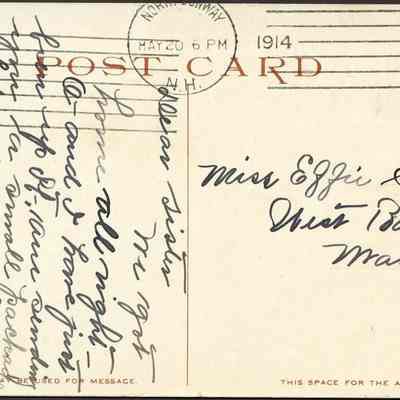 NORTH CONWAY
MAY 20 6 PM
1914
N.H.
POST CARD
Dear Sister
We got
home all right
and I have just
been up St, am sending
you a small packag
Miss Effie S
West Ba
Ma
USED FOR MESSAGE.
THIS SPACE FOR THE A